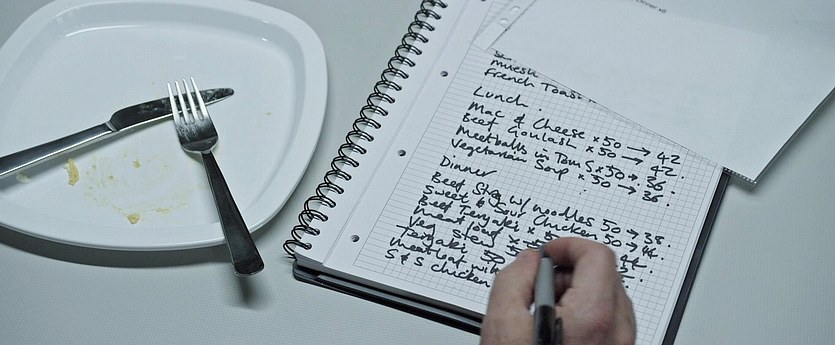 Dinner x6
muesli
French Toast
Lunch.
Mac & Cheese x50 → 42
Beef Goulash x 50 → 42.
Meatballs in Tom S x50 → 36.
Vegetarian Soup x 50 → 36.
Dinner
Beef Stog w/ noodles 50 → 38.
Sweet & Sour Chicken 50 → 44.
Beef Teryaki x
meat loaf x
Veg stew
Teryaki 50
meatloaf with
S & S chicken